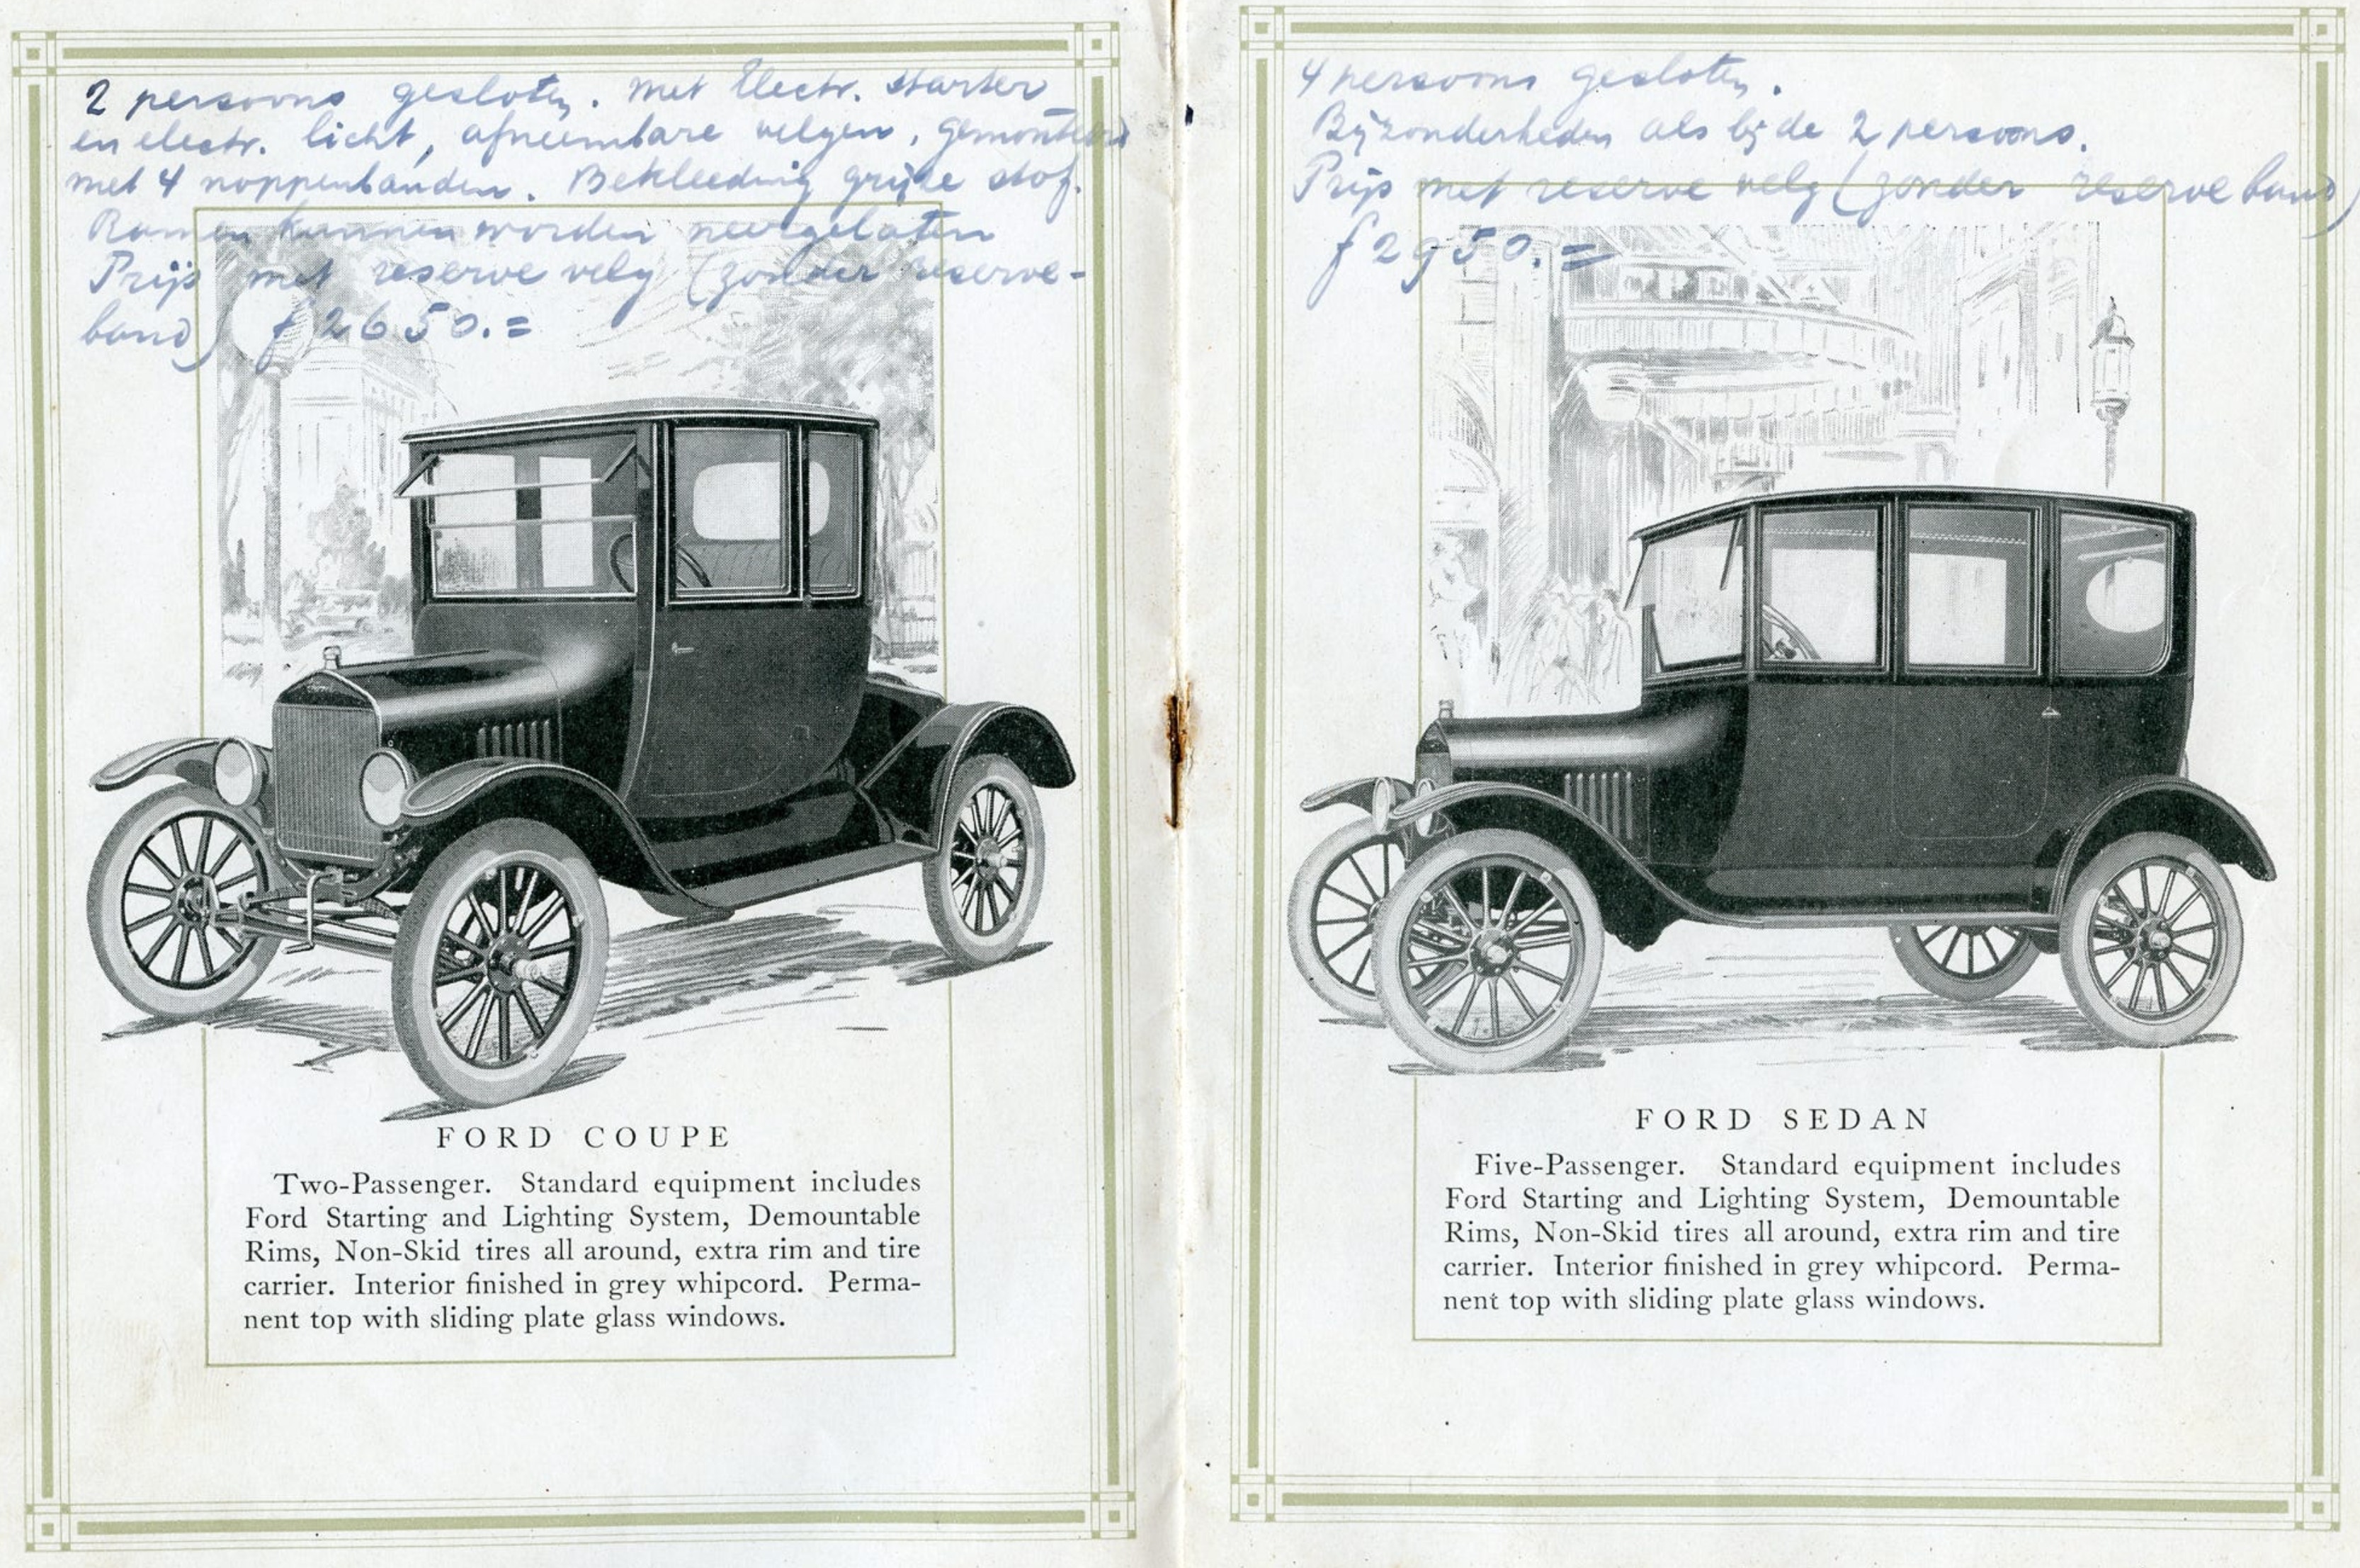 2 persoons gesloten. Met Electr. starter
en electr. licht, afneembare velgen, gemonteerd
met 4 noppenbanden. Bekleeding grijze stof.
Ramen kunnen worden neergelaten
Prijs met reserve velg (zonder reserve-
band) f 2650.=
FORD COUPE
Two-Passenger. Standard equipment includes
Ford Starting and Lighting System, Demountable
Rims, Non-Skid tires all around, extra rim and tire
carrier. Interior finished in grey whipcord. Perma-
nent top with sliding plate glass windows.
4 persoons gesloten.
Bijzonderheden als bij de 2 persoons.
Prijs met reserve velg (zonder reserve band)
f 2950.=
FORD SEDAN
Five-Passenger. Standard equipment includes
Ford Starting and Lighting System, Demountable
Rims, Non-Skid tires all around, extra rim and tire
carrier. Interior finished in grey whipcord. Perma-
nent top with sliding plate glass windows.